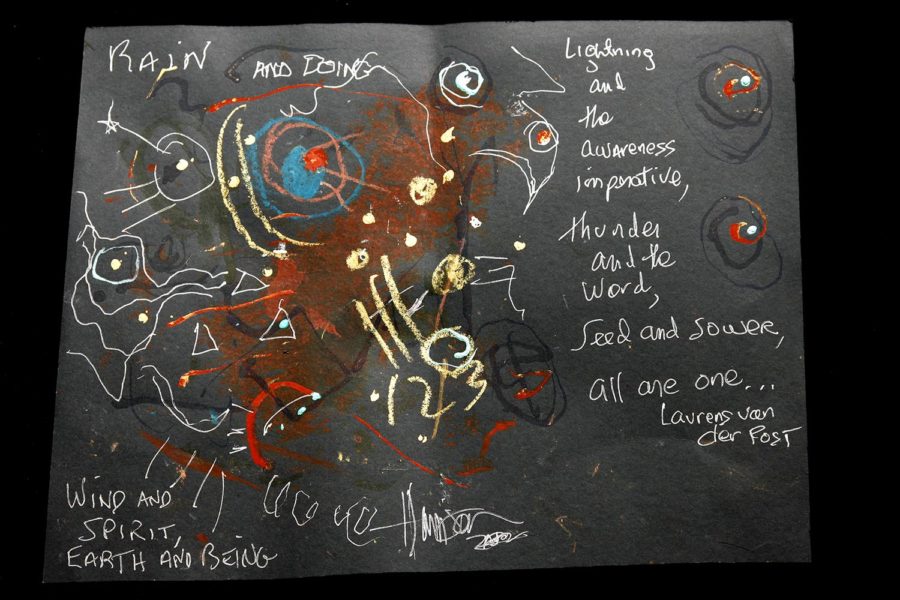 RAIN AND DOING
Lightning
and
the
awareness
imperative,
thunder
and the
Word,
Seed and Sower,
all are one...
Laurens van
der Post
123
WIND AND
SPIRIT,
EARTH AND BEING